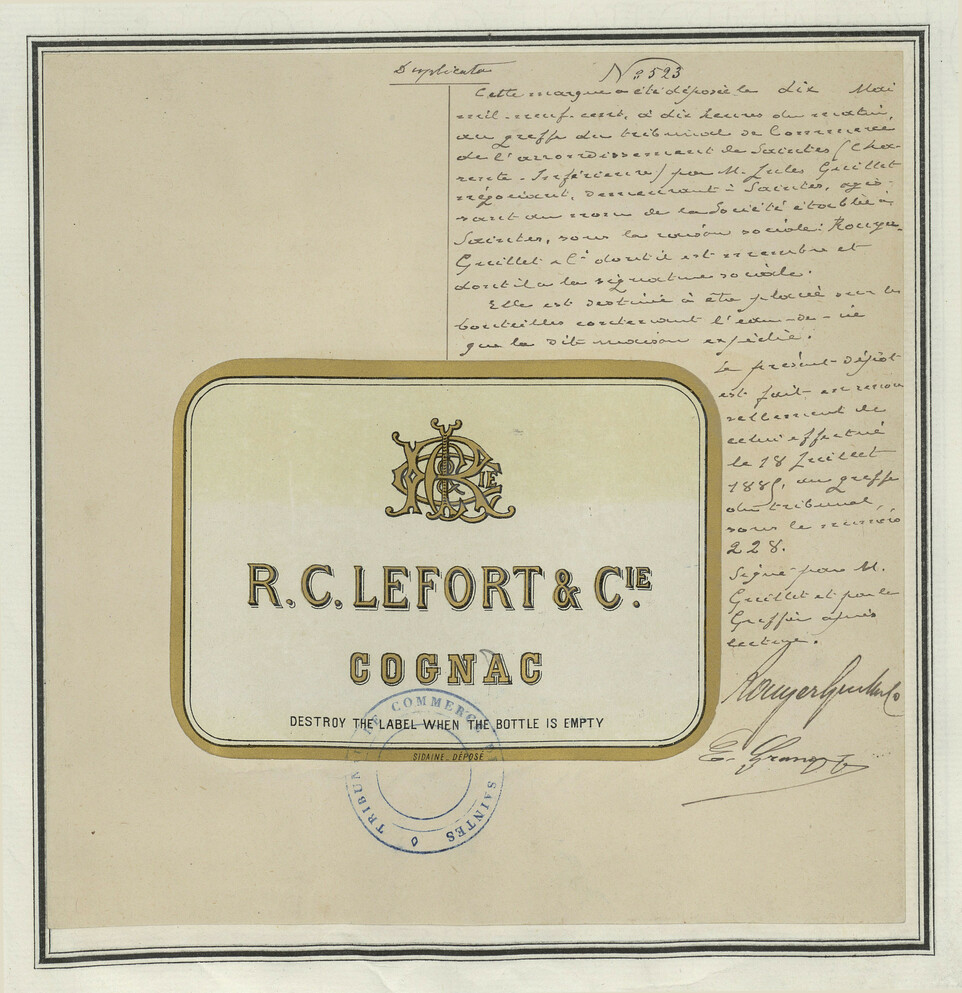 Duplicata
N° 523
Cette marque a été déposée le dix Mai
mil-neuf-cent, à dix heures du matin,
au greffe du tribunal de Commerce
de l'arrondissement de Saintes (Cha-
rente-Inférieure) par M. Jules Guillet
négociant, demeurant à Saintes, agis-
sant au nom de la Société établie à
Saintes, sous la raison sociale: Rouyer
Guillet & Cie dont il est membre et
dont il a la signature sociale.
Elle est destinée à être placée sur les
bouteilles contenant l'eau-de-vie
que la dite maison expédie.
Le présent dépôt
est fait en renou
vellement de
celui effectué
le 18 Juillet
1885, au greffe
du tribunal,
sous le numéro
228.
Signé par M.
Guillet et par le
Greffier après
lecture.
Rouyer Guillet & Co
R. C. LEFORT & CIE.
COGNAC
DESTROY THE LABEL WHEN THE BOTTLE IS EMPTY
SIDAINE. DÉPOSÉ
TRIBUNAL DE COMMERCE DE SAINTES